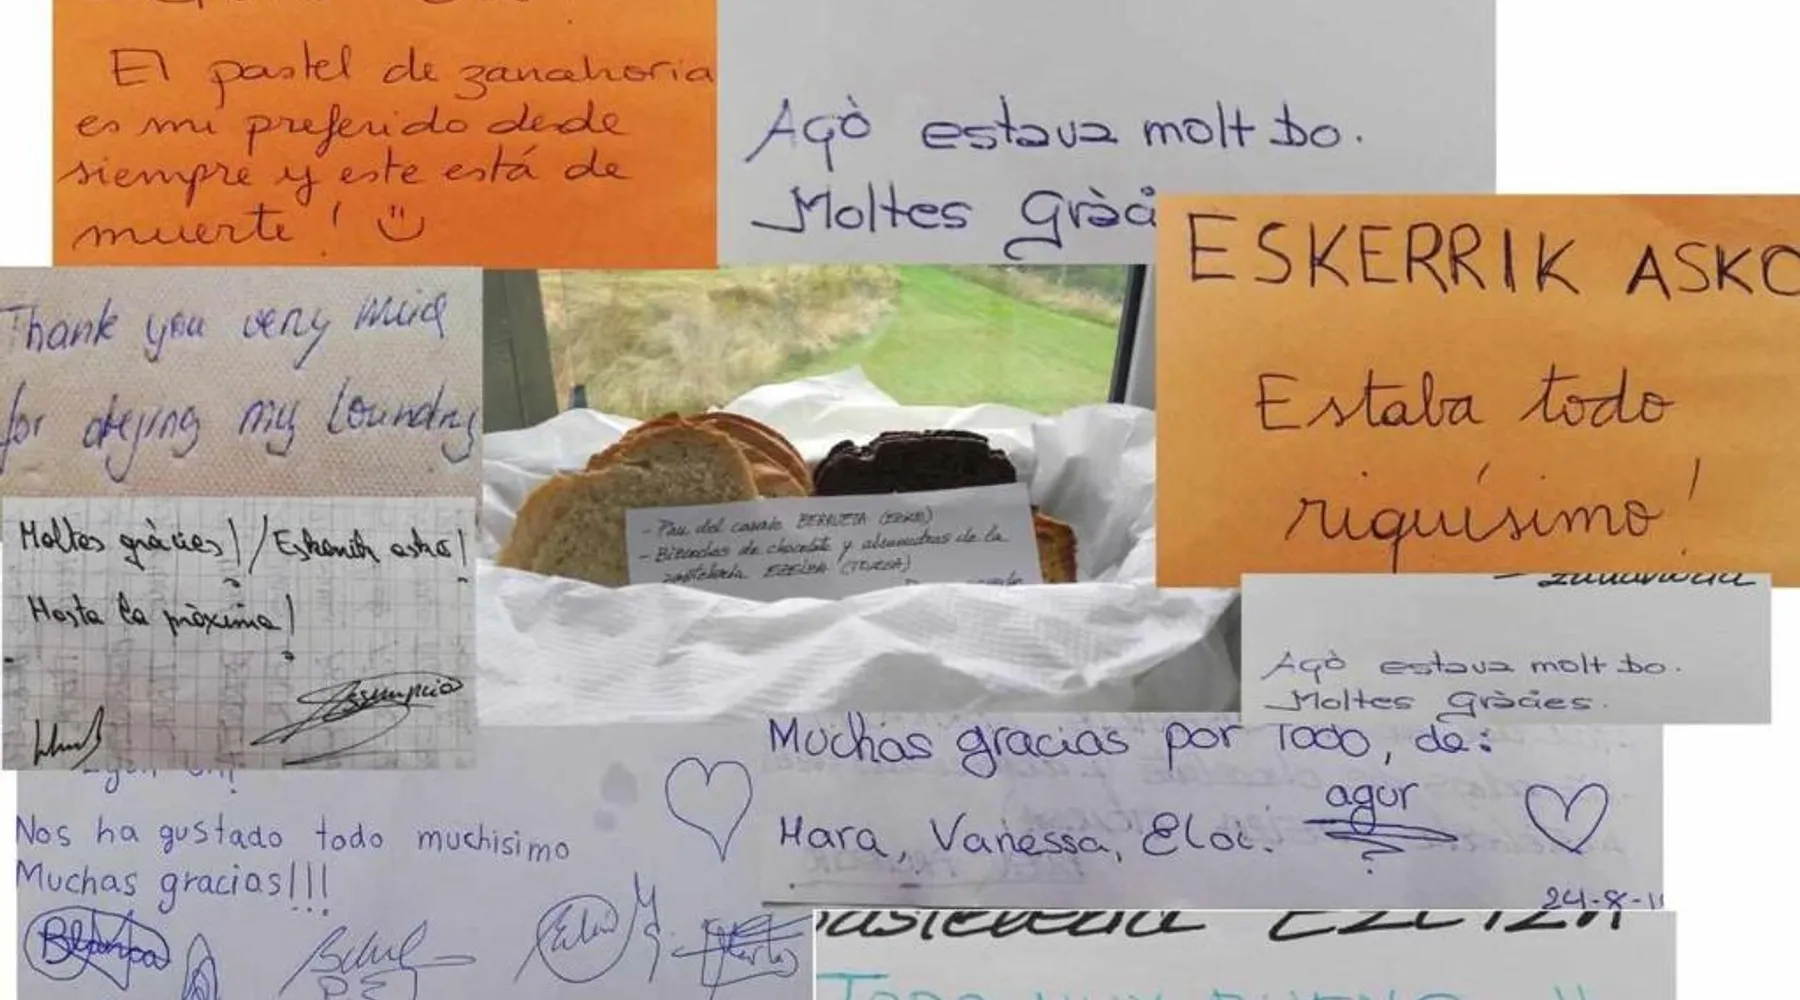 El pastel de zanahoria
es mi preferido desde
siempre y este está de
muerte!
Açò estava molt bo.
Moltes Gràci
ESKERRIK ASKO
Estaba todo
riquísimo!
Thank you very
for drying my loundry
- Pan del caserío BERRUETA
- Bizcochos de chocolate y almendras de la
pastelería EZEIZA (TOLOSA)
Moltes gràcies! / Eskerrik asko!
Hasta la pròxima!
zanahoria
Açò estava molt bo.
Moltes Gràcies.
Muchas gracias por Todo, de:
Mara, Vanessa, Eloi. agur
24-8-1
Nos ha gustado todo muchisimo
Muchas gracias!!!
Blanca
pastelería EZEIZA
TODO MUY BUENO !!